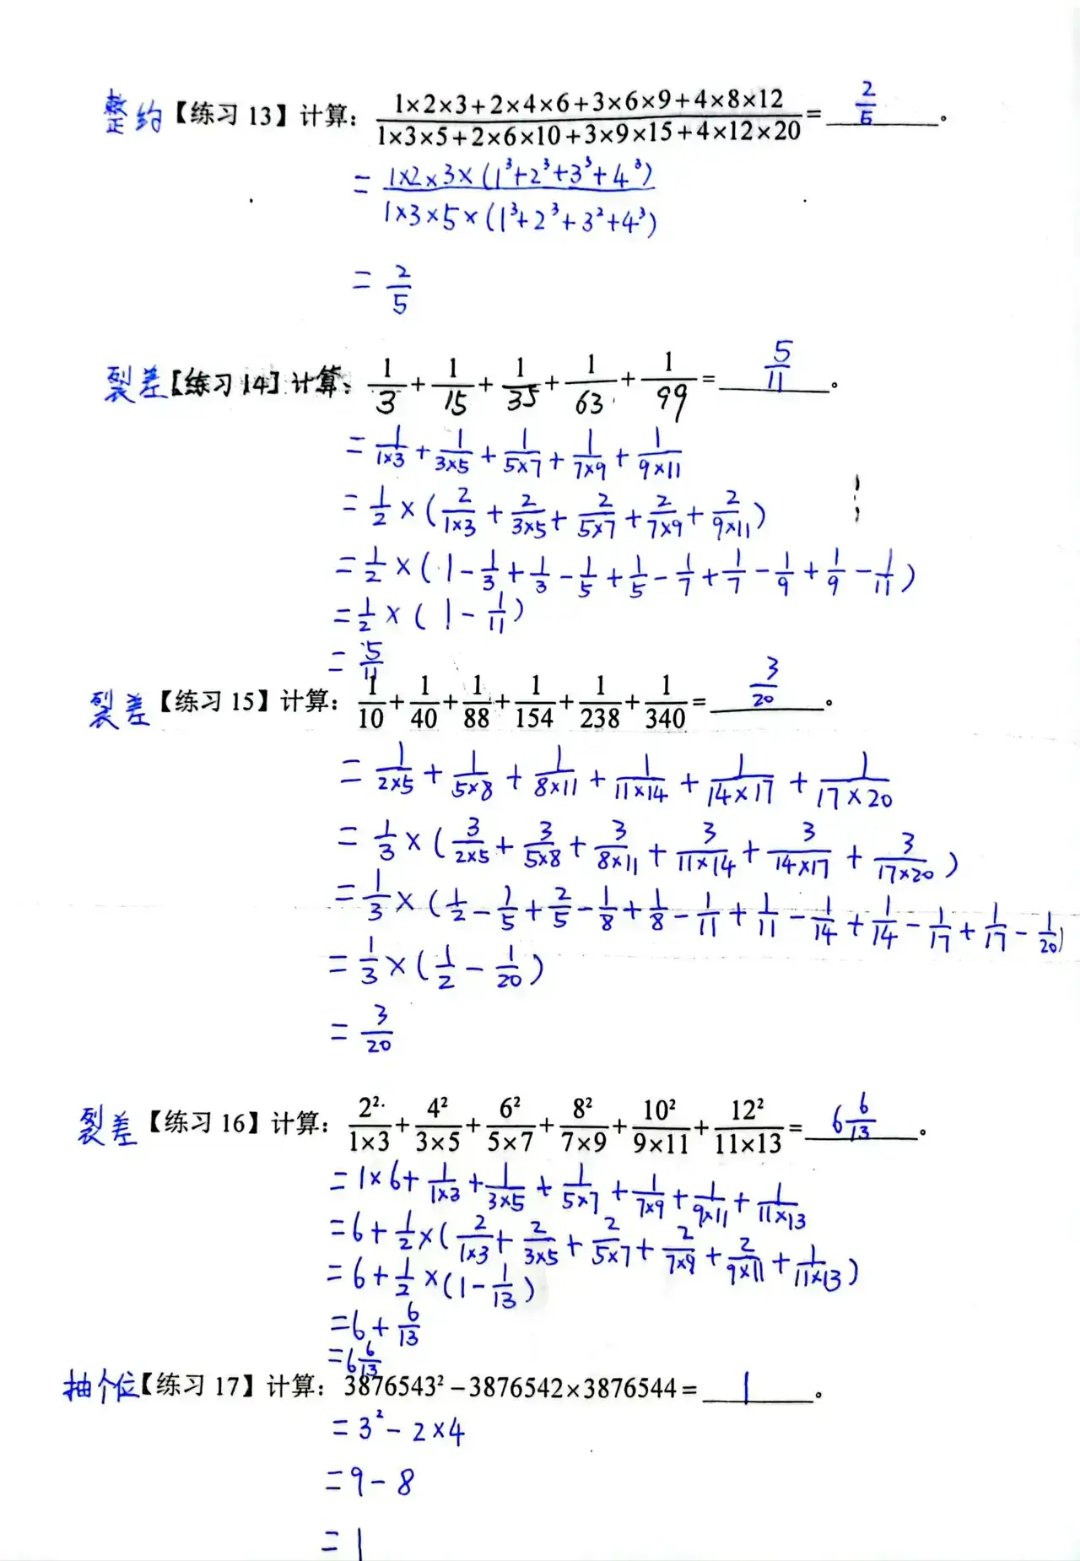 整约【练习 13】计算：(1×2×3+2×4×6+3×6×9+4×8×12)/(1×3×5+2×6×10+3×9×15+4×12×20)= 2/5 。
= (1×2×3×(1³+2³+3³+4³))/(1×3×5×(1³+2³+3²+4³))
= 2/5
裂差【练习 14】计算：1/3+1/15+1/35+1/63+1/99= 5/11 。
= 1/(1×3)+1/(3×5)+1/(5×7)+1/(7×9)+1/(9×11)
= 1/2×(2/(1×3)+2/(3×5)+2/(5×7)+2/(7×9)+2/(9×11))
= 1/2×(1-1/3+1/3-1/5+1/5-1/7+1/7-1/9+1/9-1/11)
= 1/2×(1-1/11)
= 5/11
裂差【练习 15】计算：1/10+1/40+1/88+1/154+1/238+1/340= 3/20 。
= 1/(2×5)+1/(5×8)+1/(8×11)+1/(11×14)+1/(14×17)+1/(17×20)
= 1/3×(3/(2×5)+3/(5×8)+3/(8×11)+3/(11×14)+3/(14×17)+3/(17×20))
= 1/3×(1/2-1/5+2/5-1/8+1/8-1/11+1/11-1/14+1/14-1/17+1/17-1/20)
= 1/3×(1/2-1/20)
= 3/20
裂差【练习 16】计算：2²/(1×3)+4²/(3×5)+6²/(5×7)+8²/(7×9)+10²/(9×11)+12²/(11×13)= 6 6/13 。
= 1×6+1/(1×3)+1/(3×5)+1/(5×7)+1/(7×9)+1/(9×11)+1/(11×13)
= 6+1/2×(2/(1×3)+2/(3×5)+2/(5×7)+2/(7×9)+2/(9×11)+1/(11×13))
= 6+1/2×(1-1/13)
= 6+6/13
= 6 6/13
抽个位【练习 17】计算：3876543²-3876542×3876544= 1 。
= 3²-2×4
= 9-8
= 1